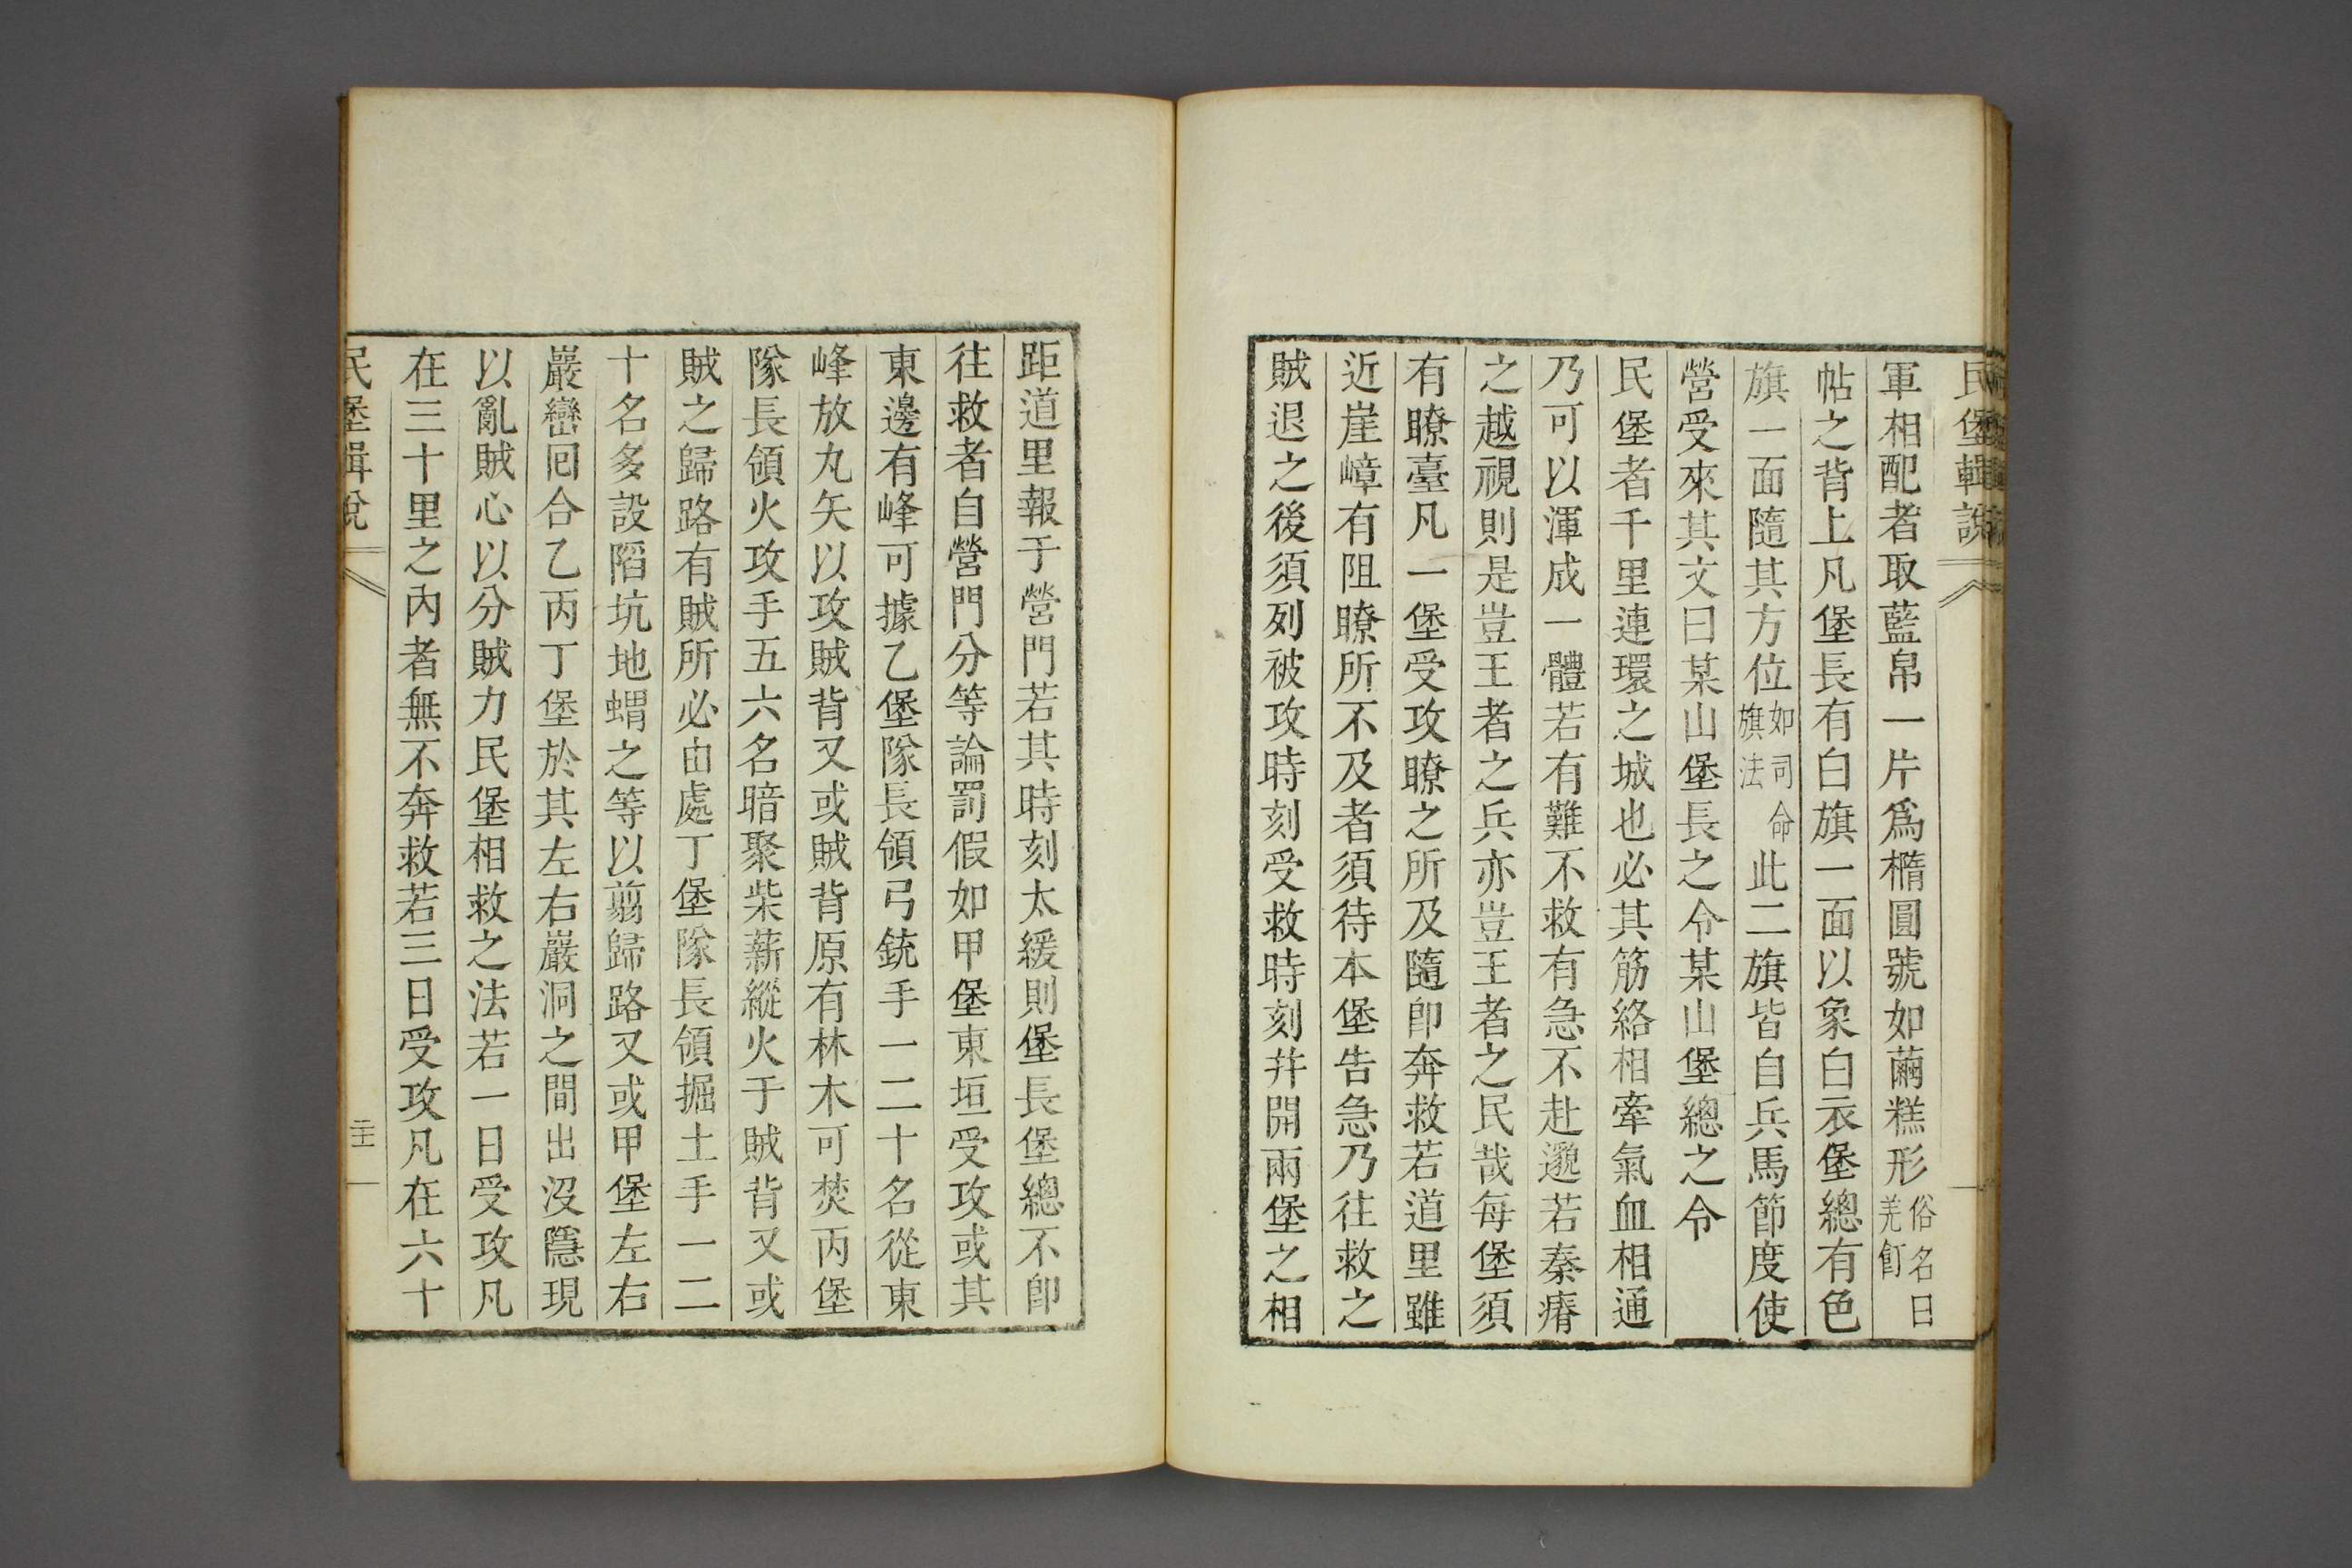 民堡輯說
軍相配者取藍帛一片爲橢圓號如繭糕形俗名曰羌飣
帖之背上凡堡長有白旗一面以象白衣堡總有色
旗一面隨其方位如司命旗法此二旗皆自兵馬節度使
營受來其文曰某山堡長之令某山堡總之令
民堡者千里連環之城也必其筋絡相牽氣血相通
乃可以渾成一體若有難不救有急不赴邈若秦瘠
之越視則是豈王者之兵亦豈王者之民哉每堡須
有瞭臺凡一堡受攻瞭之所及隨卽奔救若道里雖
近崖嶂有阻瞭所不及者須待本堡告急乃往救之
賊退之後須列被攻時刻受救時刻幷開兩堡之相
距道里報于營門若其時刻太緩則堡長堡總不卽
往救者自營門分等論罰假如甲堡東垣受攻或其
東邊有峰可據乙堡隊長領弓銃手一二十名從東
峰放丸矢以攻賊背又或賊背原有林木可焚丙堡
隊長領火攻手五六名暗聚柴薪縱火于賊背又或
賊之歸路有賊所必由處丁堡隊長領掘土手一二
十名多設陷坑地蝟之等以翦歸路又或甲堡左右
巖巒回合乙丙丁堡於其左右巖洞之間出沒隱現
以亂賊心以分賊力民堡相救之法若一日受攻凡
在三十里之內者無不奔救若三日受攻凡在六十
民堡輯說